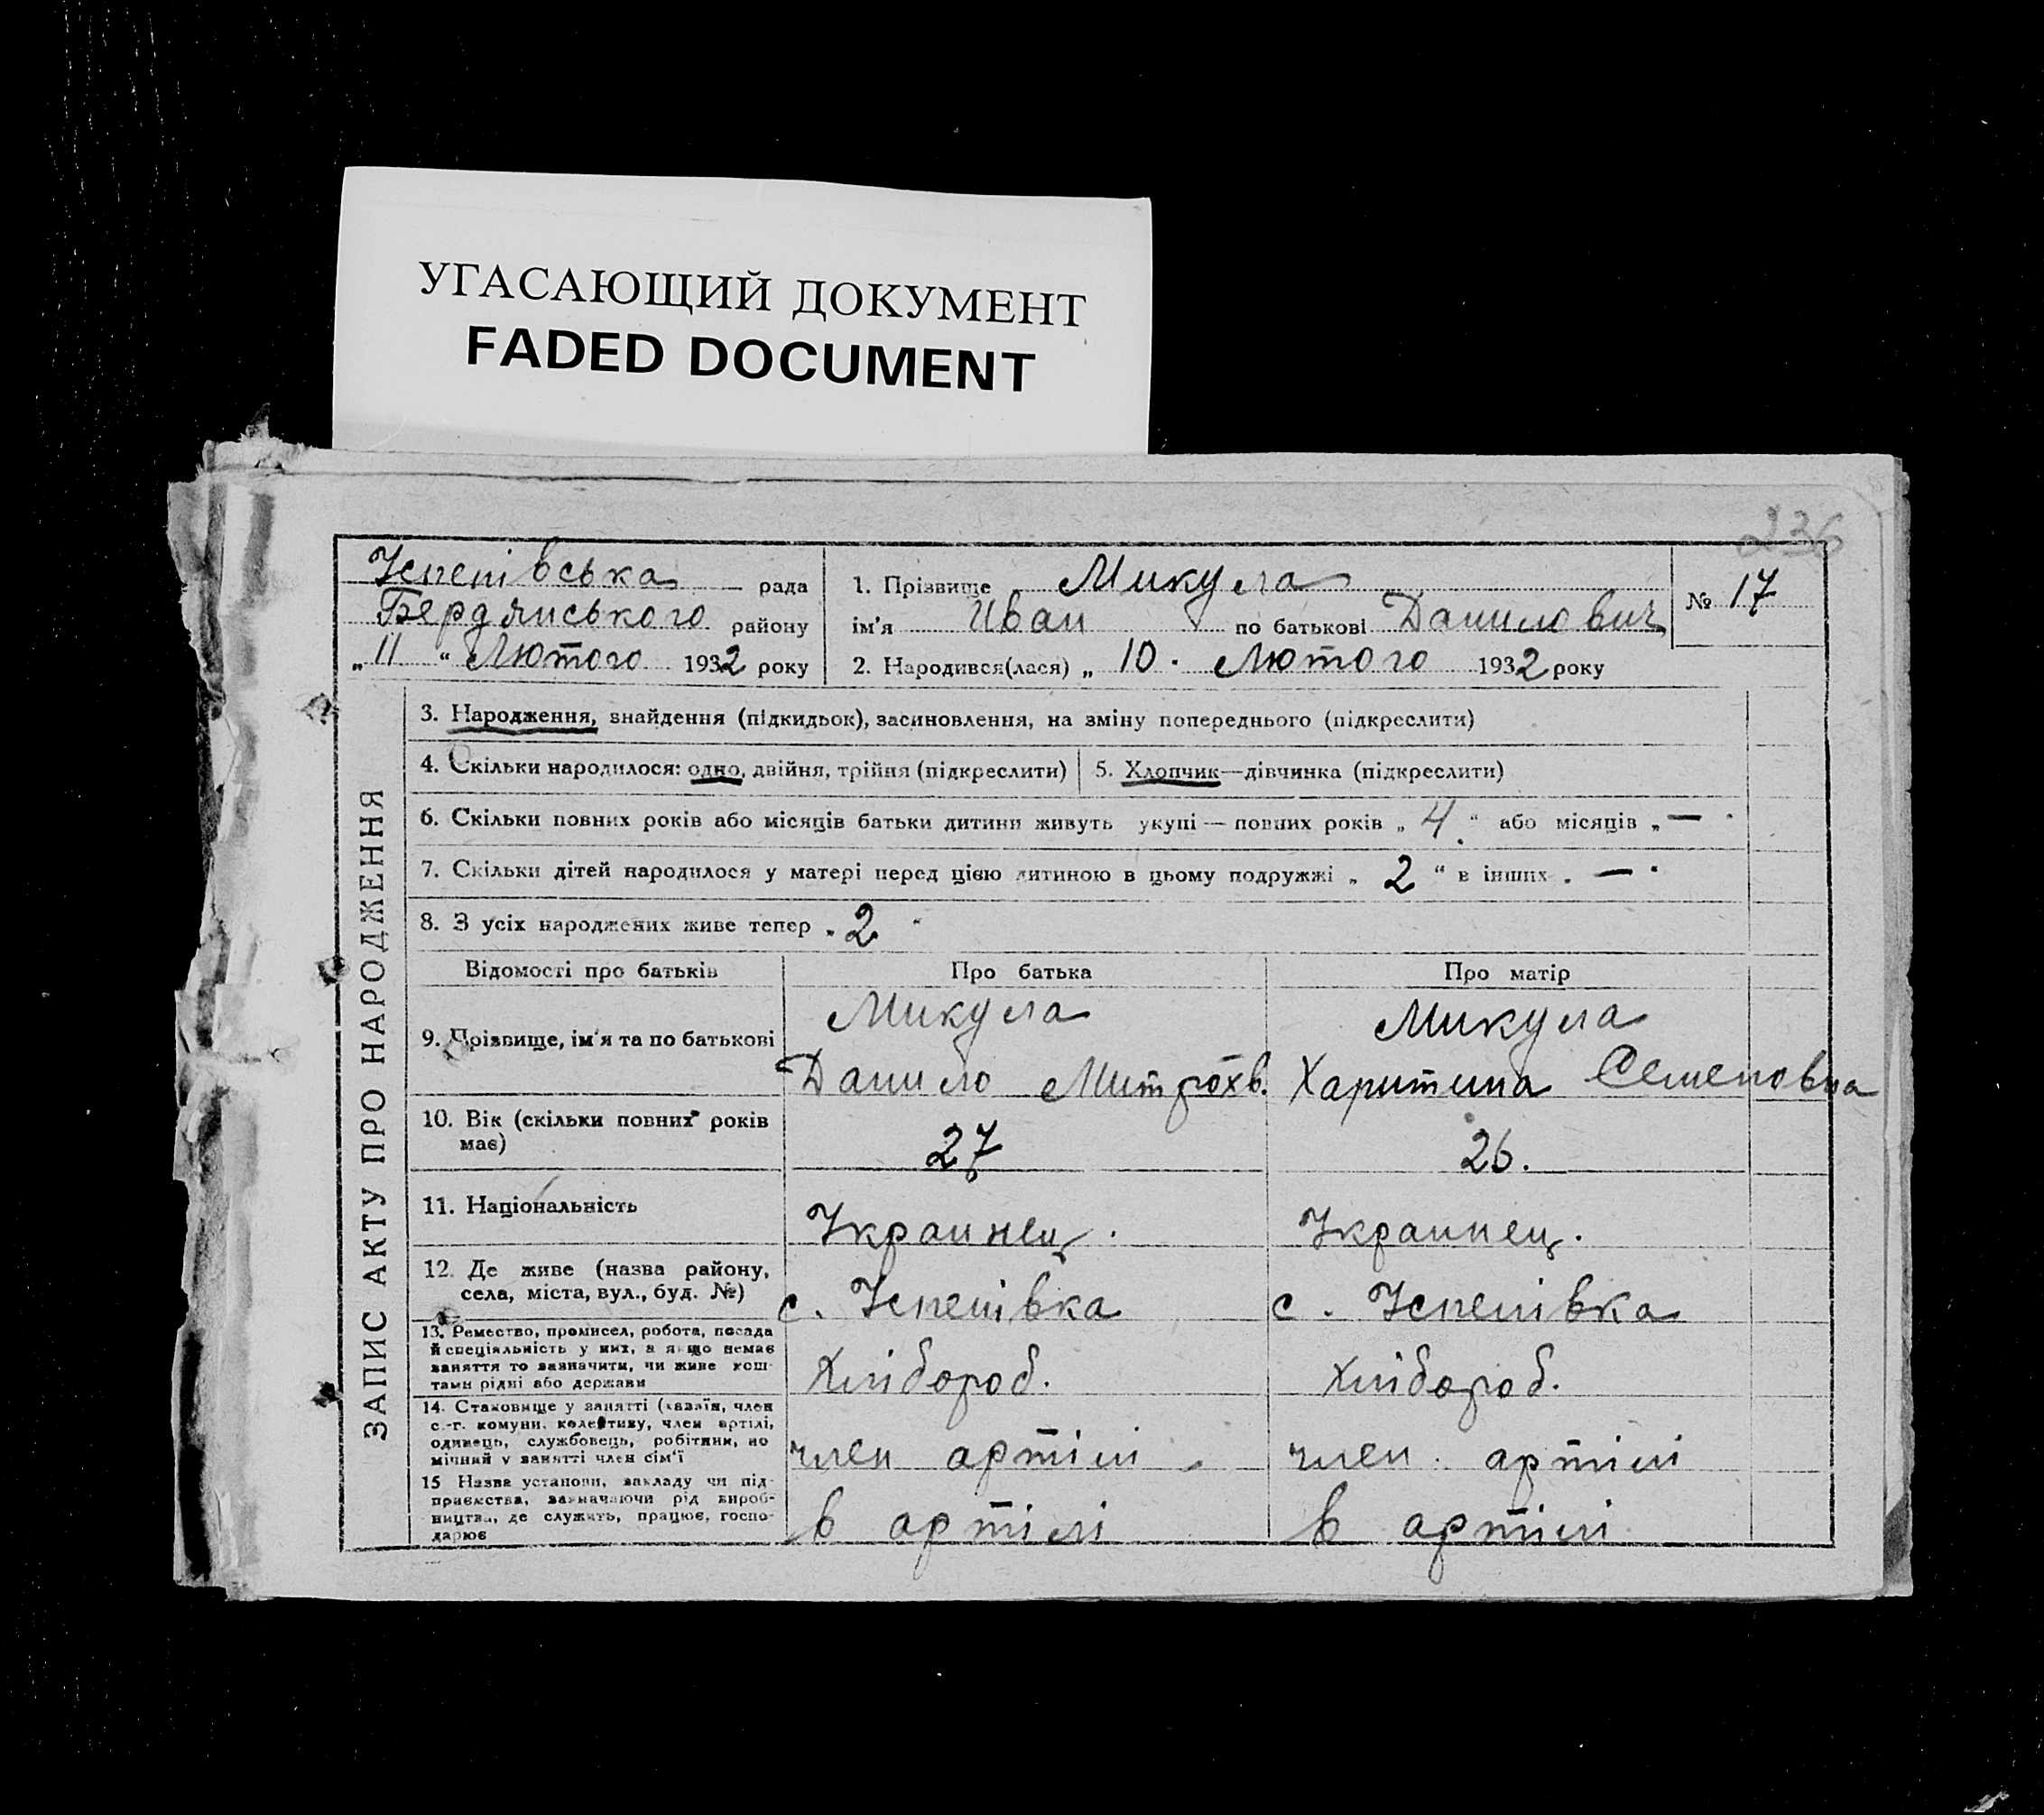 УГАСАЮЩИЙ ДОКУМЕНТ
FADED DOCUMENT
236
Успенівська рада
Бердянського району
„ 11 “ Лютого 1932 року
1. Прізвище Микула
ім'я Иван по батькові Данилович
2. Народився(лася) „ 10. Лютого 1932 року
№ 17
ЗАПИС АКТУ ПРО НАРОДЖЕННЯ
3. Народження, знайдення (підкидьок), засиновлення, на зміну попереднього (підкреслити)
4. Скільки народилося: одно, двійня, трійня (підкреслити)
5. Хлопчик—дівчинка (підкреслити)
6. Скільки повних років або місяців батьки дитини живуть укупі — повних років „ 4 “ або місяців „ —
7. Скільки дітей народилося у матері перед цією дитиною в цьому подружжі „ 2 “ в інших „ —
8. З усіх народжених живе тепер „ 2 “
Відомості про батьків Про батька Про матір
9. Прізвище, ім'я та по батькові
Микула
Данило Митрохв.
Микула
Харитина Семеновна
10. Вік (скільки повних років
має)
27
26.
11. Національність
Украинец.
Украинец.
12. Де живе (назва району,
села, міста, вул., буд. №)
с. Успенівка
с. Успенівка
13. Ремество, промисел, робота, посада
й спеціяльність у них, а якщо немає
заняття то зазначити, чи живе кош-
тами рідні або держави
Хлібороб.
Хлібороб.
14. Становище у занятті (хазяїн, член
с.-г. комуни, колективу, член артілі,
одинець, службовець, робітник, по
мічний у занятті член сім'ї
член артілі
член артілі
15 Назва установи, закладу чи під-
приємства, зазначаючи рід вироб-
ництва, де служить, працює, госпо-
дарює
в артілі
в артілі